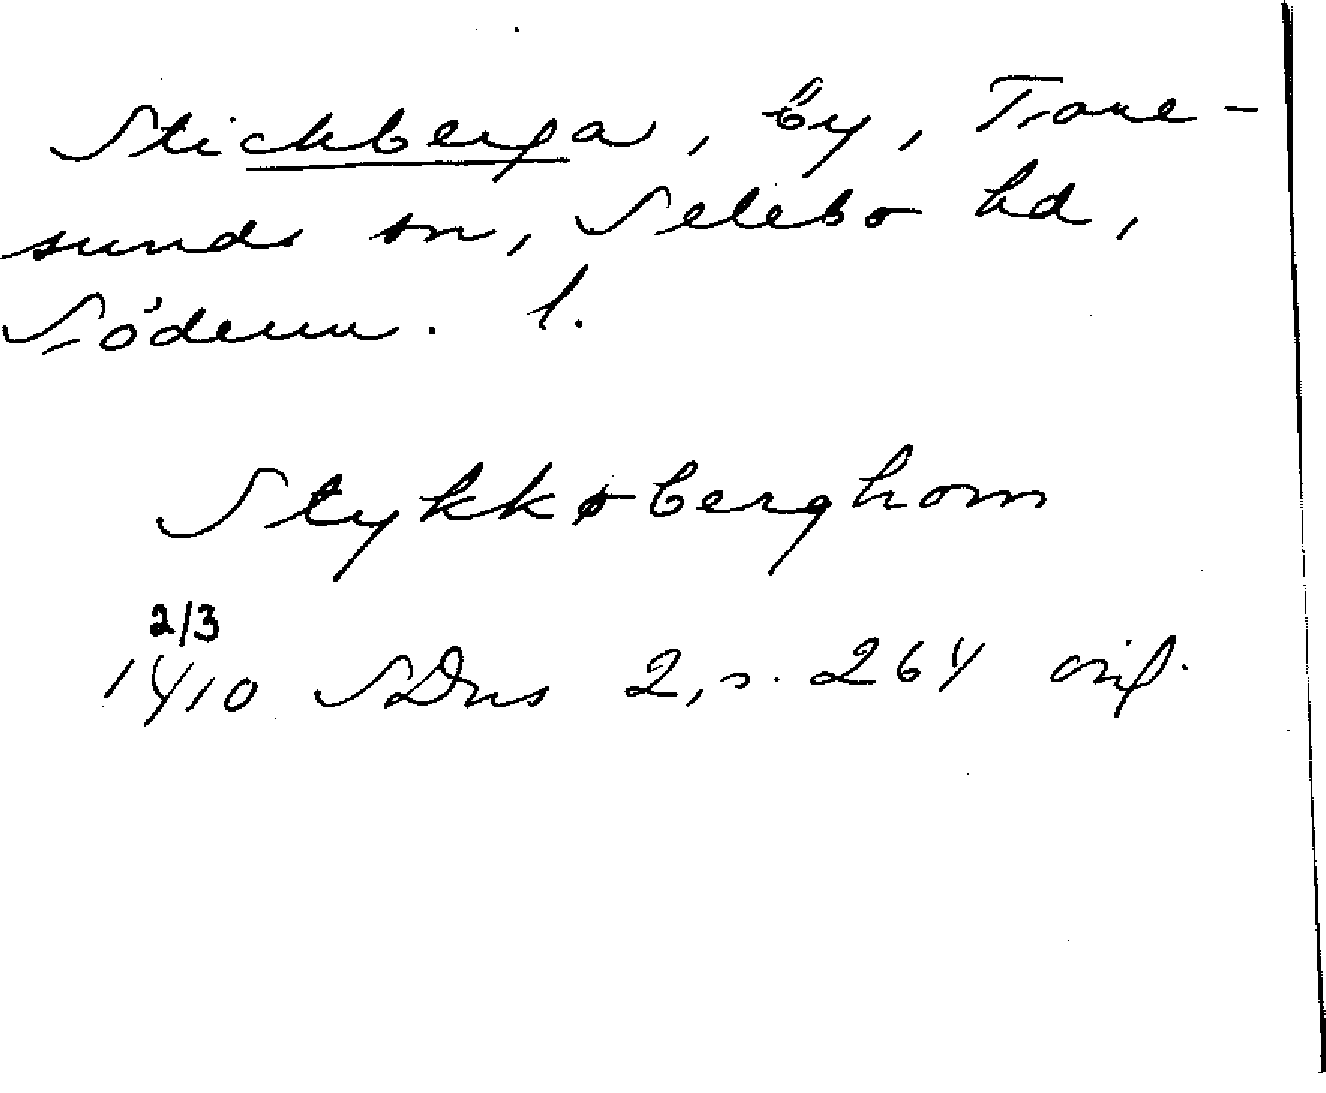 Stickberga, by, Tore-
sunds sn, Selebo hd,
Söderm. l.
Stykkøberghom
2/3
1410 SDns 2, s. 264 orig.